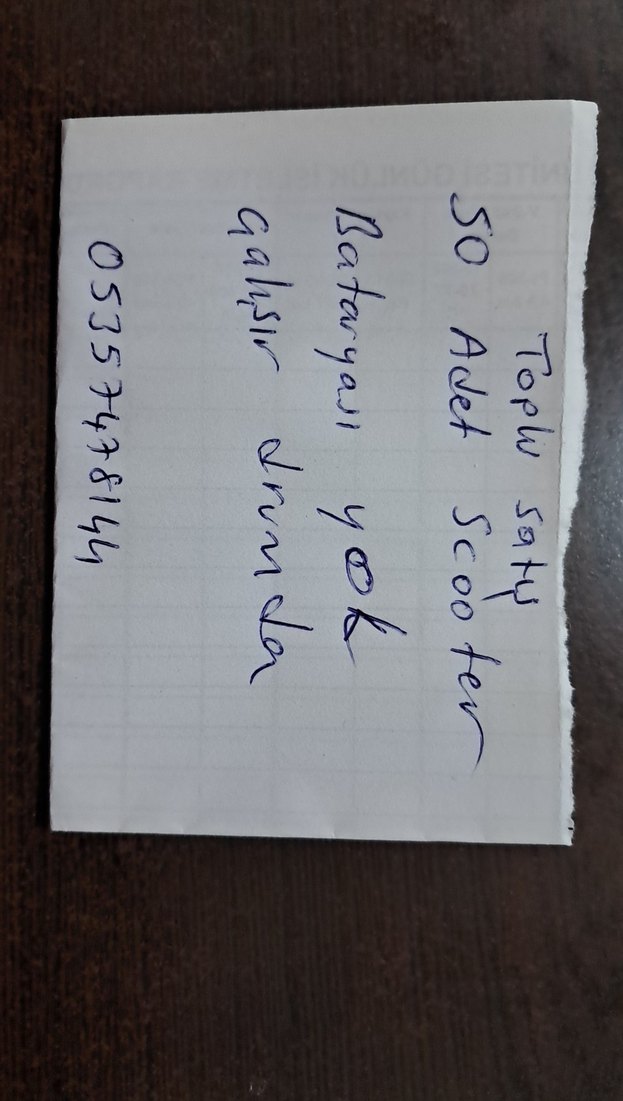 Toplu satış
50 Adet Scooter
Bataryası yok
Çalışır drumda
05357478144